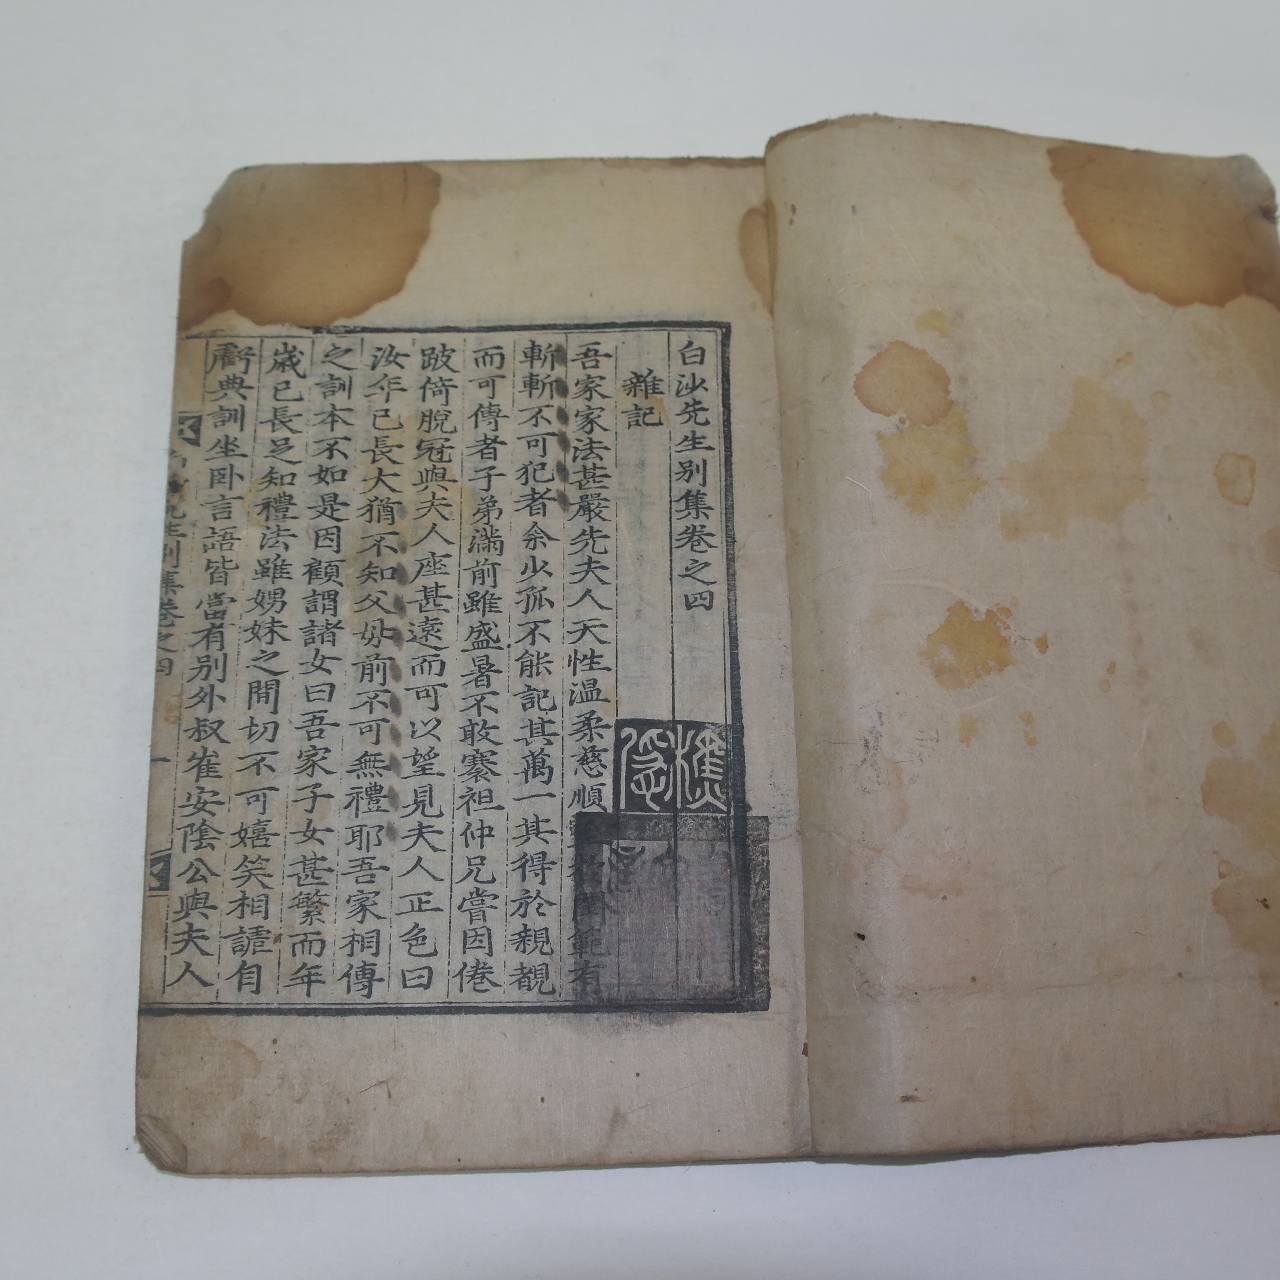 白沙先生別集卷之四
雜記
吾家家法甚嚴先夫人天性溫柔慈順範有
斬斬不可犯者余少孤不能記其萬一其得於親覩
而可傳者子弟滿前雖盛暑不敢褰袒仲兄嘗因倦
跛倚脫冠與夫人座甚遠而可以望見夫人正色曰
汝年已長大猶不知父母前不可無禮耶吾家相傳
之訓本不如是因顧謂諸女曰吾家子女甚繁而年
歲已長足知禮法雖娚妹之間切不可嬉笑相謔自
虧典訓坐卧言語皆當有別外叔崔安陰公與夫人
先生別集卷之四
一